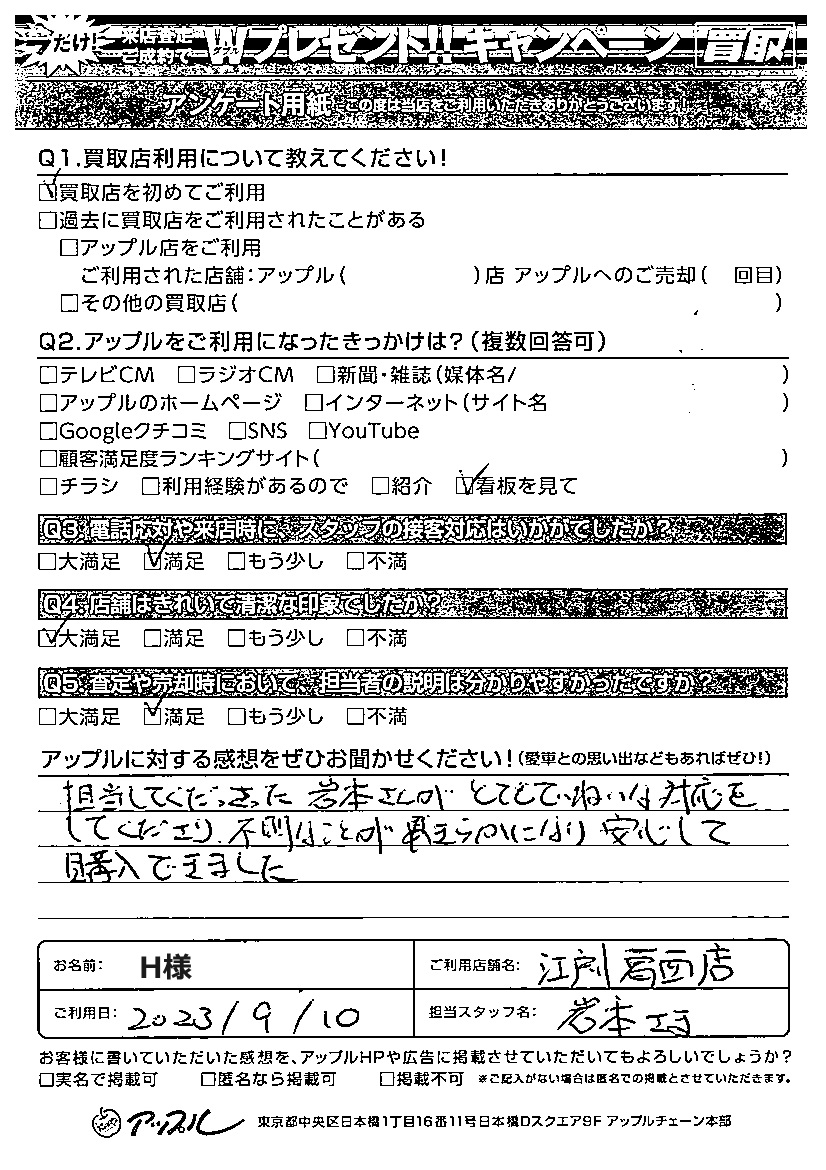 だけ!
来店査定
ご成約で
Wプレゼント!! キャンペーン 買取
アンケート用紙 この度は当店をご利用いただきありがとうございます!
Q1.買取店利用について教えてください!
☑買取店を初めてご利用
□過去に買取店をご利用されたことがある
□アップル店をご利用
ご利用された店舗:アップル( )店 アップルへのご売却( 回目)
□その他の買取店( )
Q2.アップルをご利用になったきっかけは?(複数回答可)
□テレビCM □ラジオCM □新聞・雑誌(媒体名/ )
□アップルのホームページ □インターネット(サイト名 )
□Googleクチコミ □SNS □YouTube
□顧客満足度ランキングサイト( )
□チラシ □利用経験があるので □紹介 ☑看板を見て
Q3.電話応対や来店時に、スタッフの接客対応はいかがでしたか?
□大満足 ☑満足 □もう少し □不満
Q4.店舗はきれいで清潔な印象でしたか?
☑大満足 □満足 □もう少し □不満
Q5.査定や売却時において、担当者の説明は分かりやすかったですか?
□大満足 ☑満足 □もう少し □不満
アップルに対する感想をぜひお聞かせください!(愛車との思い出などもあればぜひ!)
担当してくださった岩本さんがとてもていねいな対応を
してくださり、不明なことが明らかになり安心して
購入できました
お名前: H様
ご利用店舗名: 江戸川葛西店
ご利用日: 2023/9/10
担当スタッフ名: 岩本さま
お客様に書いていただいた感想を、アップルHPや広告に掲載させていただいてもよろしいでしょうか?
□実名で掲載可 □匿名なら掲載可 □掲載不可 ※ご記入がない場合は匿名での掲載とさせていただきます。
アップル 東京都中央区日本橋1丁目16番11号日本橋Dスクエア9F アップルチェーン本部